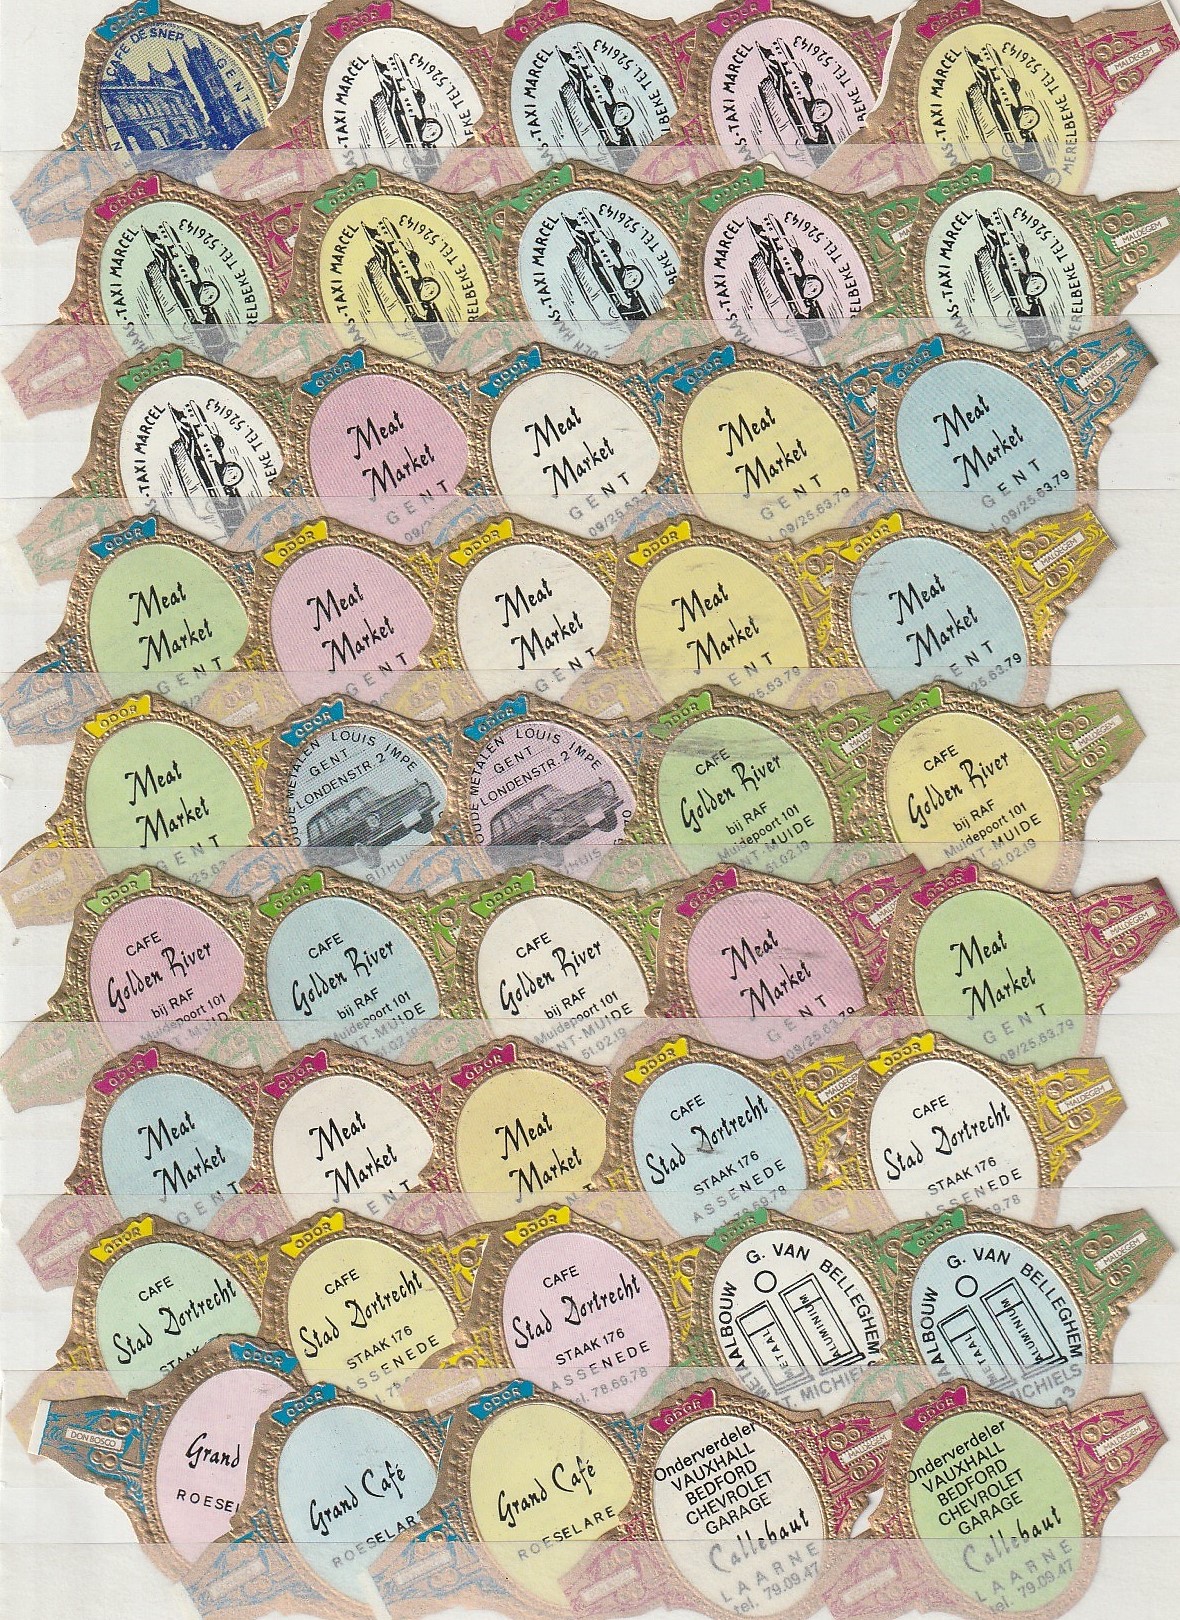 ODOR
CAFE DE SNEP
GENT
ODOR
TAXI MARCEL
TEL. 526143
ODOR
TAXI MARCEL
TEL. 526143
ODOR
HAAS-TAXI MARCEL
TEL. 526143
ODOR
TAXI MARCEL
MERELBEKE TEL. 526143
MALDEGEM
ODOR
HAAS-TAXI MARCEL
TEL. 526143
ODOR
HAAS-TAXI MARCEL
TEL. 526143
ODOR
HAAS-TAXI MARCEL
TEL. 526143
ODOR
HAAS-TAXI MARCEL
TEL. 526143
ODOR
HAAS-TAXI MARCEL
MERELBEKE TEL. 526143
MALDEGEM
ODOR
TAXI MARCEL
TEL. 526143
ODOR
Meat
Market
GENT
ODOR
Meat
Market
GENT
09/25.63.79
ODOR
Meat
Market
GENT
09/25.63.79
ODOR
Meat
Market
GENT
09/25.63.79
MALDEGEM
ODOR
Meat
Market
GENT
ODOR
Meat
Market
GENT
ODOR
Meat
Market
GENT
ODOR
Meat
Market
ENT
25.63.79
ODOR
Meat
Market
GENT
25.63.79
MALDEGEM
ODOR
Meat
Market
GENT
ODOR
OUDE METALEN LOUIS IMPE
GENT
LONDENSTR. 2
ODOR
OUDE METALEN LOUIS IMPE
GENT
LONDENSTR. 2
ODOR
CAFE
Golden River
bij RAF
Muidepoort 101
NT-MUIDE
51.02.19
MALDEGEM
ODOR
CAFE
Golden River
bij RAF
Muidepoort 101
NT-MUIDE
51.02.19
MALDEGEM
ODOR
CAFE
Golden River
bij RAF
Muidepoort 101
ODOR
CAFE
Golden River
bij RAF
Muidepoort 101
NT-MUIDE
ODOR
CAFE
Golden River
bij RAF
Muidepoort 101
NT-MUIDE
51.02.19
ODOR
Meat
Market
GENT
09/25.63.79
ODOR
Meat
Market
GENT
09/25.63.79
MALDEGEM
ODOR
Meat
Market
GENT
ODOR
Meat
Market
ENT
ODOR
Meat
Market
ODOR
CAFE
Stad Dortrecht
STAAK 176
ASSENEDE
MALDEGEM
ODOR
CAFE
Stad Dortrecht
STAAK 176
ASSENEDE
MALDEGEM
ODOR
CAFE
Stad Dortrecht
STAAK
ODOR
CAFE
Stad Dortrecht
STAAK 176
ASSENEDE
ODOR
CAFE
Stad Dortrecht
STAAK 176
ASSENEDE
tel. 78.69.78
ODOR
METAALBOUW G. VAN BELLEGHEM
METAAL
ALUMINIUM
MICHIELS
ODOR
TAALBOUW G. VAN BELLEGHEM
METAAL
ALUMINIUM
MICHIELS
MALDEGEM
ODOR
DON BOSCO
Grand
ROESEL
ODOR
Grand Café
ROESELAR
ODOR
Grand Café
ROESELARE
ODOR
Onderverdeler
VAUXHALL
BEDFORD
CHEVROLET
GARAGE
Callebaut
LAARNE
tel. 79.09.47
MALDEGEM
ODOR
Onderverdeler
VAUXHALL
BEDFORD
CHEVROLET
GARAGE
Callebaut
LAARNE
tel. 79.09.47
MALDEGEM